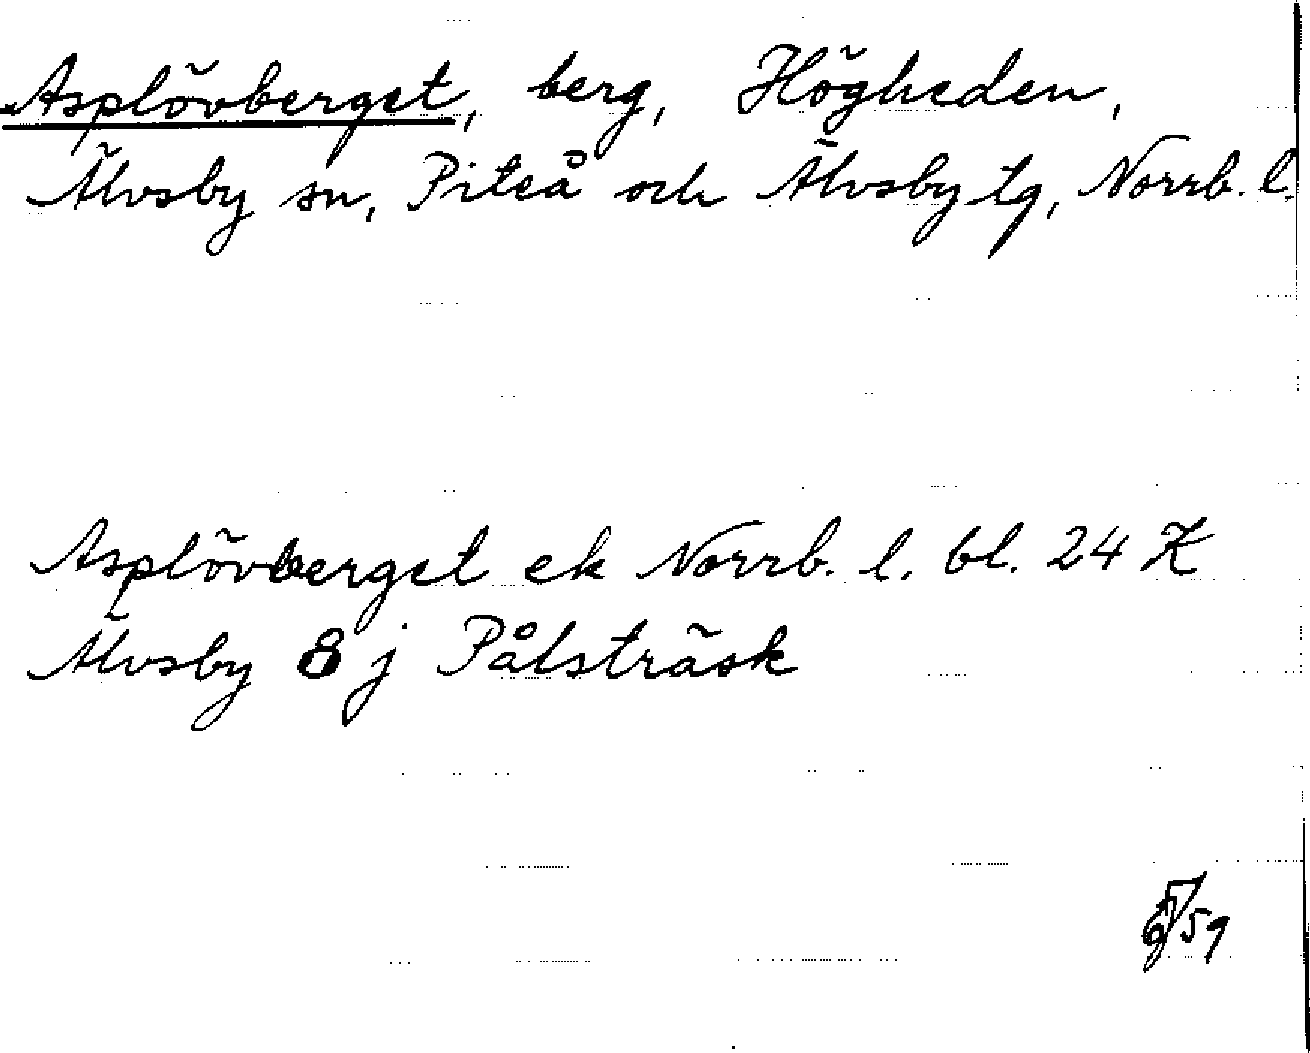 Asplövberget, berg, Högheden,
Älvsby sn, Piteå och Älvsby tg, Norrb. l.
Asplövberget ek Norrb. l. bl. 24 K
Älvsby 8 j Pålsträsk